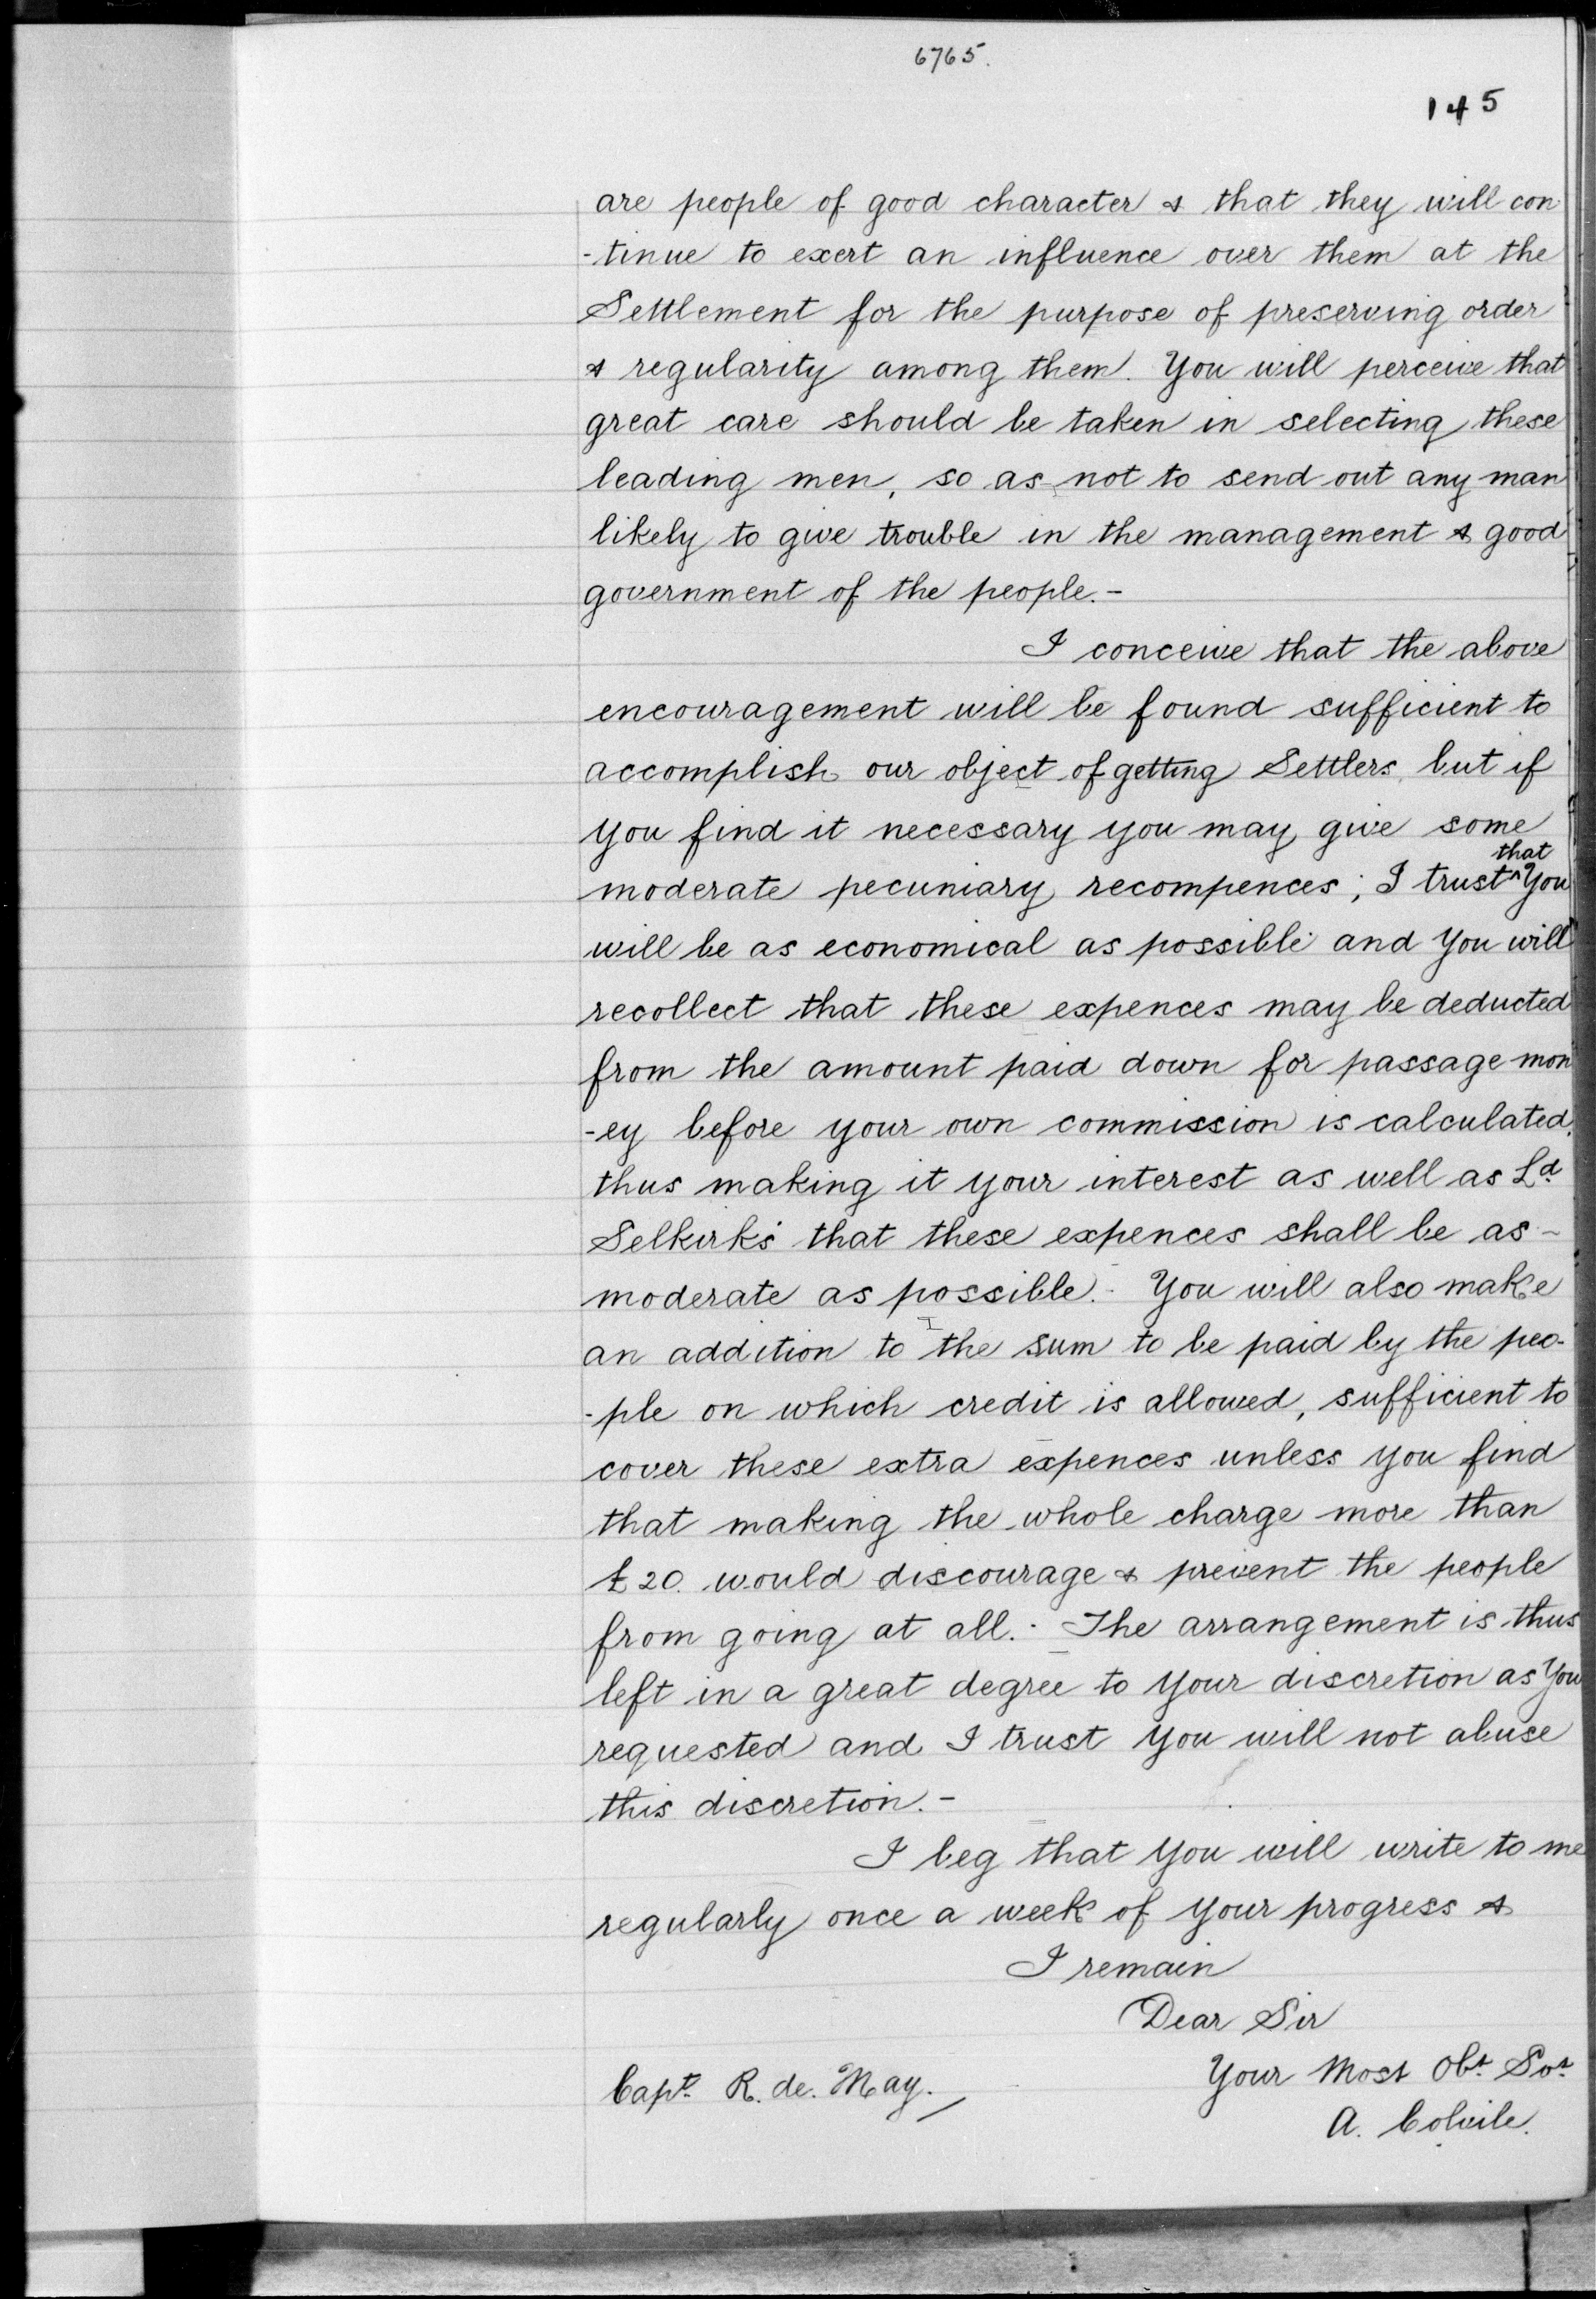 6765.
145
are people of good character & that they will con
-tinue to exert an influence over them at the
Settlement for the purpose of preserving order
& regularity among them. You will perceive that
great care should be taken in selecting these
leading men, so as not to send out any man
likely to give trouble in the management & good
government of the people.-
I conceive that the above
encouragement will be found sufficient to
accomplish our object of getting Settlers, but if
you find it necessary you may give some
moderate pecuniary recompences; I trust ^that You
will be as economical as possible and You will
recollect that these expences may be deducted
from the amount paid down for passage mon
-ey before your own commission is calculated,
thus making it your interest as well as Ld.
Selkirk's that these expences shall be as -
moderate as possible.- You will also make
an addition to the sum to be paid by the peo-
-ple on which credit is allowed, sufficient to
cover these extra expences unless you find
that making the whole charge more than
£20. would discourage & prevent the people
from going at all.- The arrangement is thus
left in a great degree to Your discretion as You
requested and I trust You will not abuse
this discretion.-
I beg that You will write to me
regularly once a week of Your progress &
I remain
Dear Sir
Your Most Obt. Svt.
Capt. R. de. May.
A. Colvile.